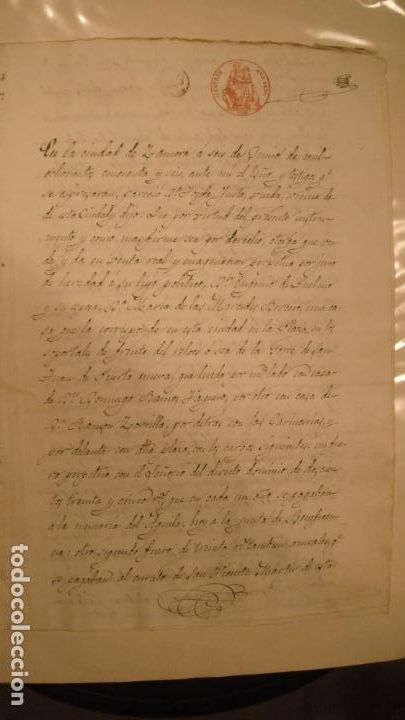 En la ciudad de Zamora á seis de Junio de mil
ochocientos cincuenta y seis, ante mi el Esno y testigos qe
se espresaran, parecio Da Josefa Justo, viuda, vecina de
de esta Ciudad y dijo: Que por virtud del presente instru-
mento y como mas firme sea por derecho, otorga que ven-
de, y da en venta real y enagenacion perpetua por juro
de heredad á su hijo politico, Dn Eugenio de
y su esposa, Da Maria de las Mercedes Berrero, una ca-
sa que la corresponde en esta ciudad en la Plaza, en los
soportales de frente del relox ó sea de la Torre de San
Juan de Puerta nueva, que linda por un lado con casa
de Dn Domingo Baños, por otro con casa de
Dn Ramon Zorrilla, por detras con las Carnicerias, y
por delante con dha plaza, con las cargas siguientes: un fue-
ro perpetuo con el Señorio del directo dominio de doscien-
tos treinta y cinco rs que en cada un año se pagaban
á la memoria del Aguila, hoy a la Junta de Beneficen-
cia: otro segundo fuero de treinta rs tambien anuales qe
se pagaban al curato de San Vicente Martir de esta
todocoleccion.net